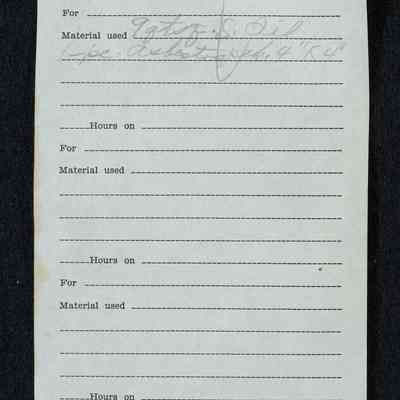 For
Material used 9 qts. S. Oil
1 pc. Asbestos 4" x 4"
Hours on
For
Material used
Hours on
For
Material used
Hours on